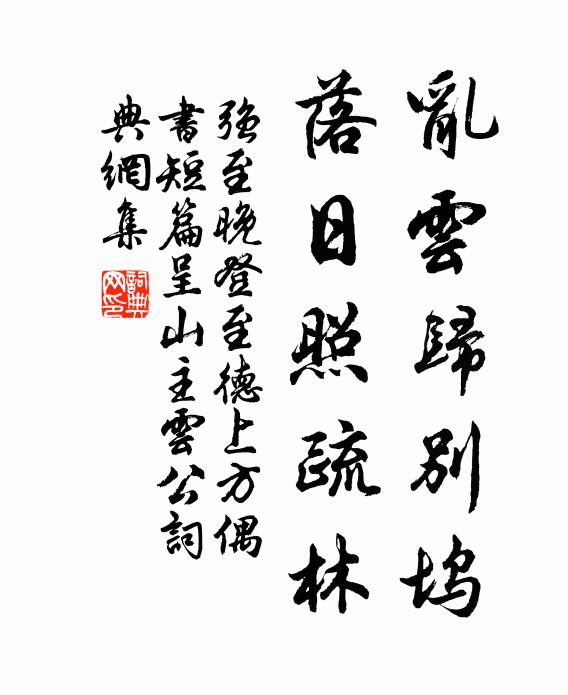 亂雲歸別塢
落日照疏林
強至晚登至德上方偶
書短篇呈山主雲公詞
典網集
詞典
网印